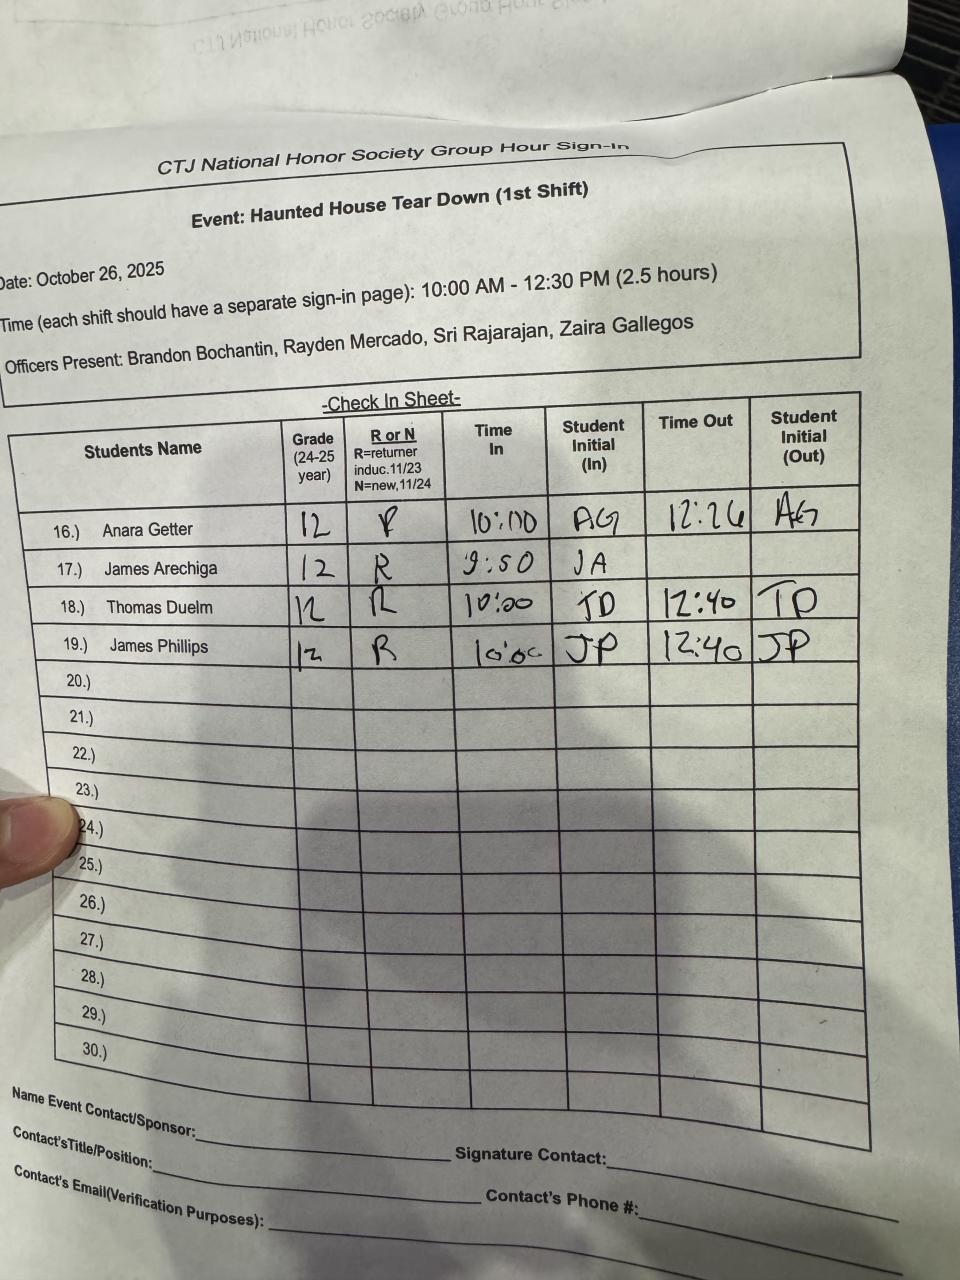 CTJ National Honor Society Group Hour
CTJ National Honor Society Group Hour Sign-In
Event: Haunted House Tear Down (1st Shift)
Date: October 26, 2025
Time (each shift should have a separate sign-in page): 10:00 AM - 12:30 PM (2.5 hours)
Officers Present: Brandon Bochantin, Rayden Mercado, Sri Rajarajan, Zaira Gallegos
-Check In Sheet-
Students Name Grade (24-25 year) R or N R=returner induc.11/23 N=new,11/24 Time In Student Initial (In) Time Out Student Initial (Out)
16.) Anara Getter 12 R 10:00 AG 12:26 AG
17.) James Arechiga 12 R 9:50 JA
18.) Thomas Duelm 12 R 10:00 TD 12:40 TD
19.) James Phillips 12 R 10:00 JP 12:40 JP
20.)
21.)
22.)
23.)
24.)
25.)
26.)
27.)
28.)
29.)
30.)
Name Event Contact/Sponsor: Signature Contact:
Contact'sTitle/Position: Contact's Phone #:
Contact's Email(Verification Purposes):